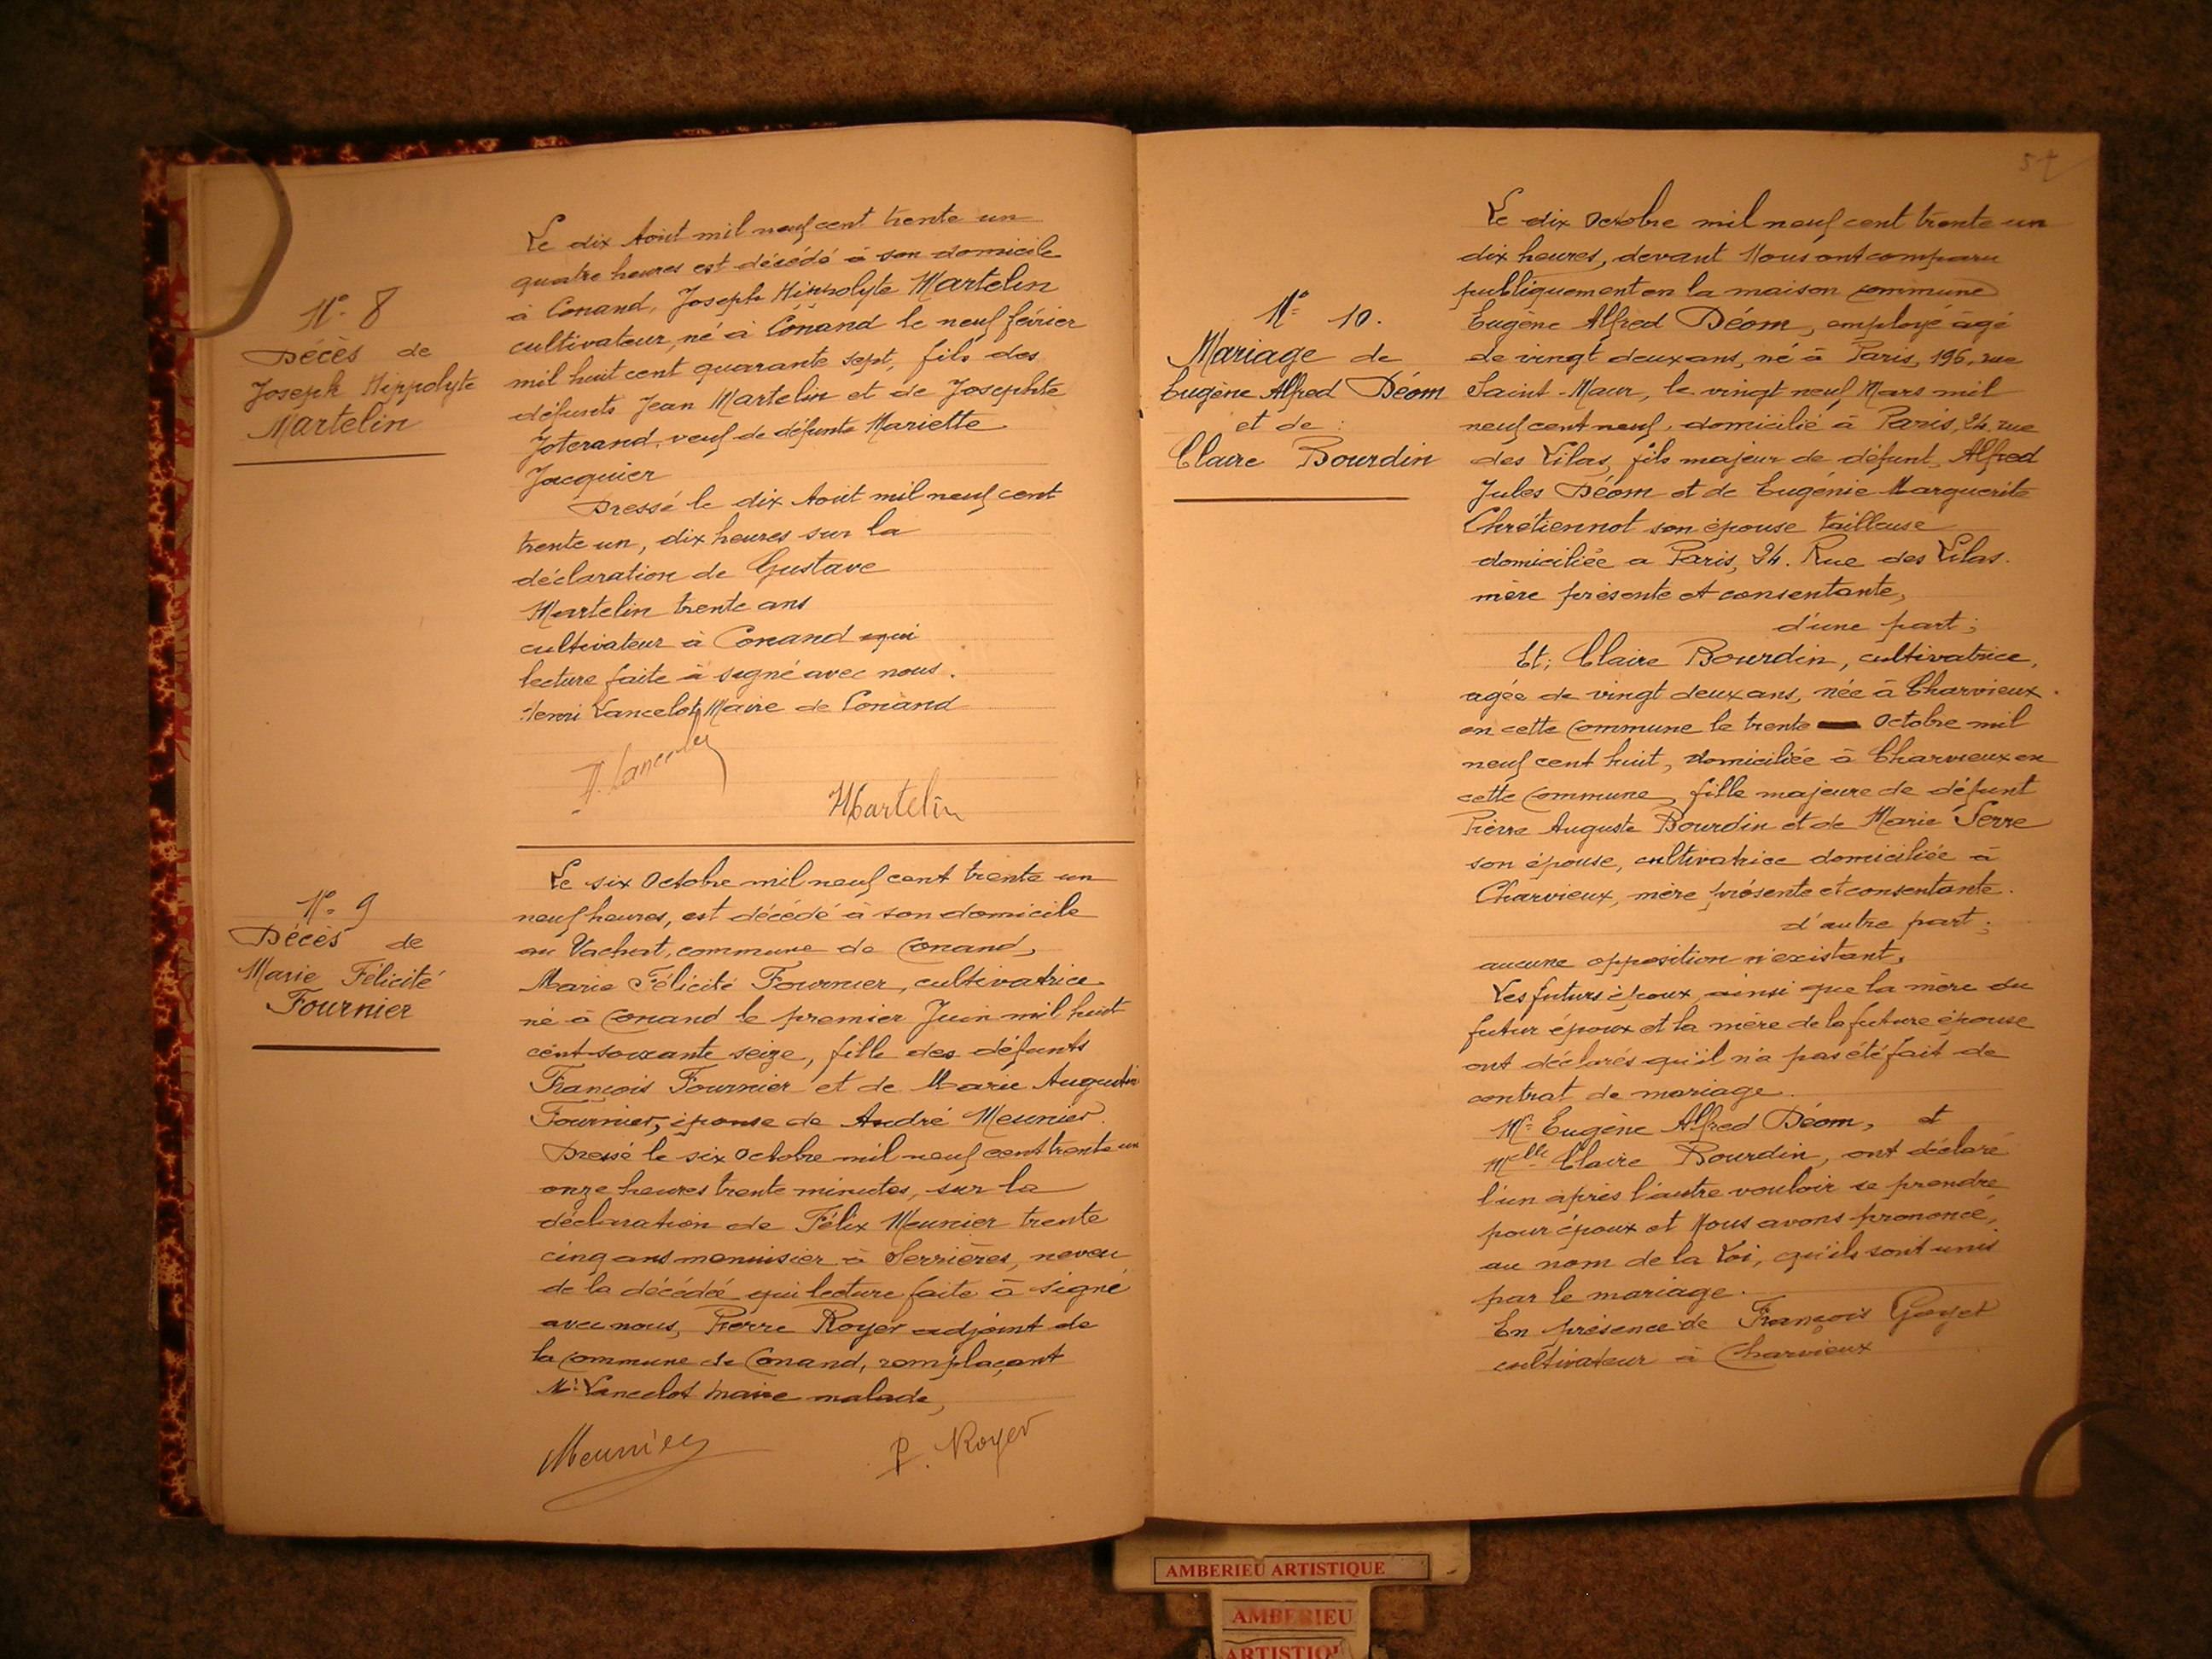 N° 8
Décès de
Joseph Hippolyte
Martelin
Le dix Août mil neuf cent trente un
quatre heures est décédé à son domicile
à Conand, Joseph Hippolyte Martelin
cultivateur, né à Conand le neuf février
mil huit cent quarante sept, fils des
défunts Jean Martelin et de Josephte
Joterand, veuf de défunte Mariette
Jacquier
Dressé le dix Août mil neuf cent
trente un, dix heures sur la
déclaration de Gustave
Martelin trente ans
cultivateur à Conand qui
lecture faite à signé avec nous.
Henri Lancelot, Maire de Conand
H. Lancelot
Martelin
N° 9
Décès de
Marie Félicité
Fournier
Le six Octobre mil neuf cent trente un
neuf heures, est décédé à son domicile
au Vachat, commune de Conand,
Marie Félicité Fournier, cultivatrice
né à Conand le premier Juin mil huit
cent soixante seize, fille des défunts
François Fournier et de Marie Augustin
Fournier, épouse de André Meunier.
Dressé le six Octobre mil neuf cent trente un
onze heures trente minutes, sur la
déclaration de Félix Meunier trente
cinq ans menuisier à Serrières, neveu
de la décédée qui lecture faite à signé
avec nous, Pierre Royer adjoint de
la commune de Conand, remplaçant
Mr Lancelot maire malade,
Meunier
P. Royer
57
N° 10.
Mariage de
Eugène Alfred Déom
et de :
Claire Bourdin
Le dix Octobre mil neuf cent trente un
dix heures, devant Nous ont comparu
publiquement en la maison commune
Eugène Alfred Déom, employé âgé
de vingt deux ans, né à Paris, 196, rue
Saint-Maur, le vingt neuf Mars mil
neuf cent neuf, domicilié à Paris, 24, rue
des Lilas, fils majeur de défunt, Alfred
Jules Déom et de Eugénie Marguerite
Chrétiennot son épouse tailleuse
domiciliée a Paris, 24. Rue des Lilas.
mère présente et consentante,
d'une part ;
Et ; Claire Bourdin, cultivatrice,
agée de vingt deux ans, née à Charvieux
en cette commune le trente Octobre mil
neuf cent huit, domiciliée à Charvieux en
cette commune, fille majeure de défunt
Pierre Auguste Bourdin et de Marie Serre
son épouse, cultivatrice domiciliée à
Charvieux, mère présente et consentante.
d'autre part ;
aucune opposition n'existant,
Les futurs époux, ainsi que la mère du
futur époux et la mère de la future épouse
ont déclarés qu'il n'a pas été fait de
contrat de mariage.
Mr Eugène Alfred Déom, et
Melle Claire Bourdin, ont déclaré
l'un après l'autre vouloir se prendre
pour époux et Nous avons prononcé,
au nom de la Loi, qu'ils sont unis
par le mariage.
En présence de François Goyet
cultivateur à Charvieux
AMBERIEU ARTISTIQUE
AMBERIEU
ARTISTIQU